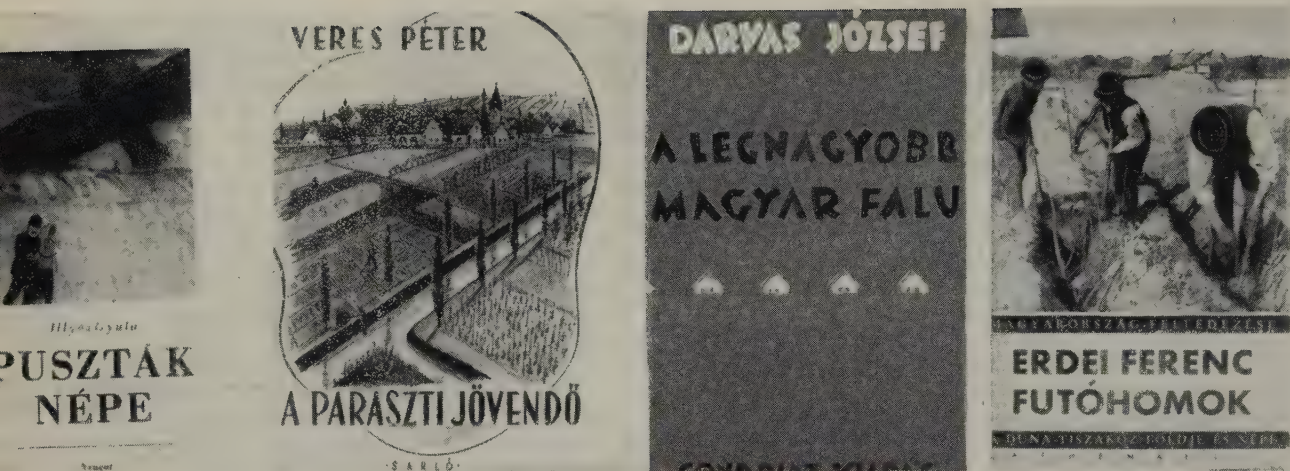 Illyés Gyula
PUSZTÁK
NÉPE
Nyugat
VERES PÉTER
A PARASZTI JÖVENDŐ
·SARLÓ·
DARVAS JÓZSEF
A LEGNAGYOBB
MAGYAR FALU
MAGYARORSZÁG FELFEDEZÉSE
ERDEI FERENC
FUTÓHOMOK
DUNA-TISZAKÖZ FÖLDJE ÉS NÉPE
ATHENAEUM